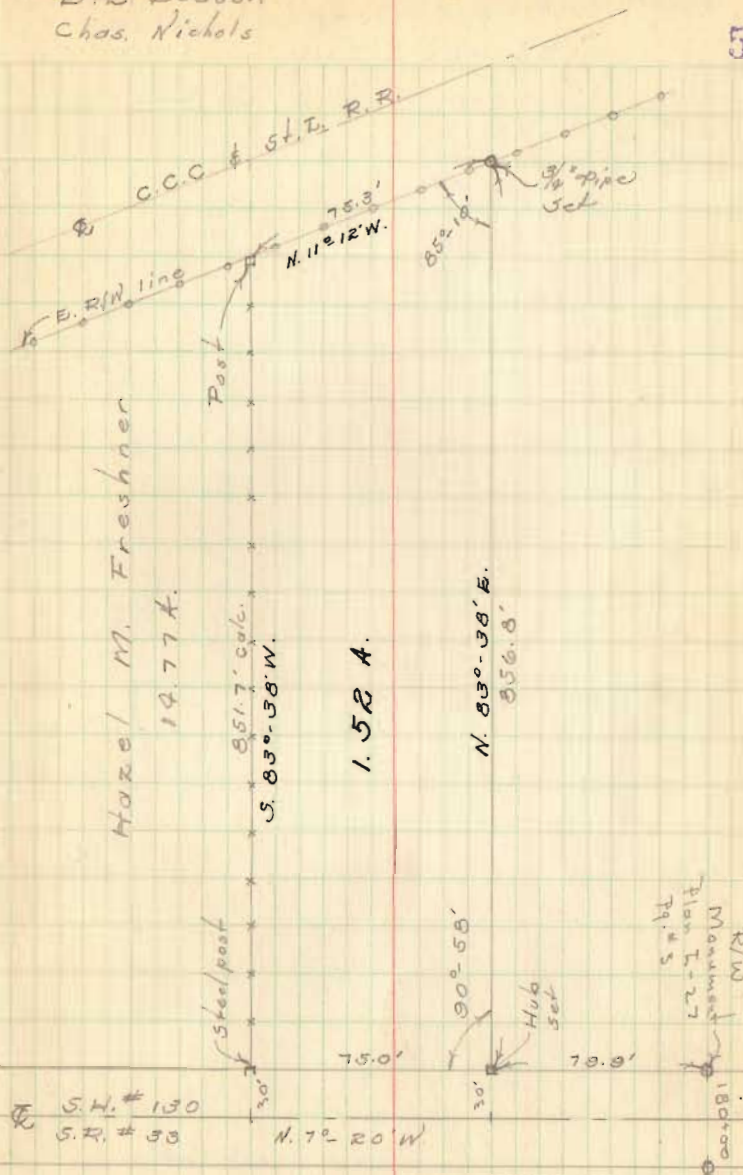 Chas. Nichols
C.C.C. & St. L. R.R.
℄
75.3'
N. 11°-12' W.
85°-10'
3/4" Pipe
set
E. R/W line
Post
Hazel M. Freshner
14.77 A.
851.7' calc.
S. 83°-38' W.
1.52 A.
N. 83°-38' E.
856.8'
Steel post
90°-58'
Hub
set
R/W
Monument
Plan I-22
Pg. # 3
75.0'
79.9'
30'
30'
℄ S.H. # 130
S.R. # 33
N. 7°-20' W
180+00